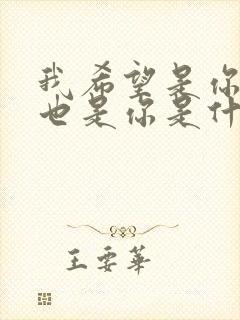 我希望是你
也是你是什
王要華